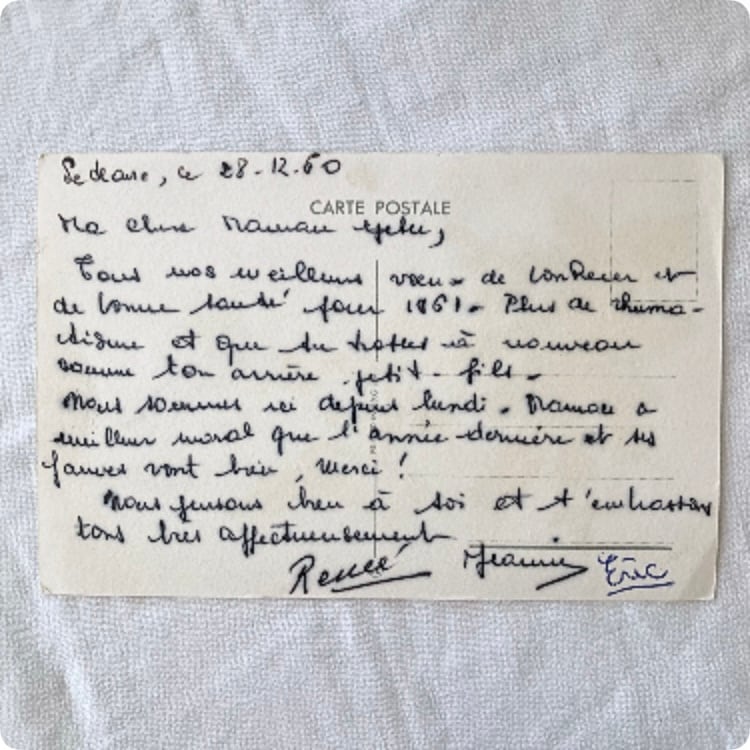 ce 28.12.60
CARTE POSTALE
Ma chère Maman
Tous nos meilleurs vœux de bonheur et
de bonne santé pour 1961. Plus de rhuma-
tisme et que tu trottes à nouveau
comme ton arrière petit-fils.
Nous sommes ici depuis lundi. Maman a
meilleur moral que l'année dernière et ses
jambes vont bien, merci !
Nous pensons bien à toi et t'embrassons
tous très affectueusement
Renée Jeannine Eric